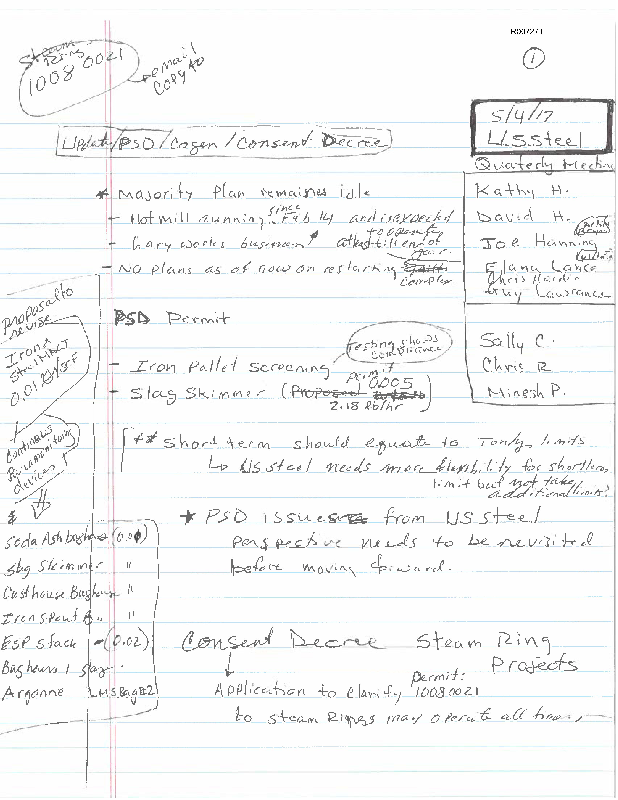 ①
Steam
Rings
1008 0021
email
copy to
5/4/17
U.S. Steel
Update/PSD/Cogen/Consent Decree
Quaterly Meeting
* Majority Plan remaines idle
Kathy H.
since
- Hotmill running Feb 14 and is expected
David H.
to operate
- Gary works business
atleast till end of
year.
Joe Hanning
- NO Plans as of now on restarting
Complex
Elana Lance
Chris Hardin
Guy Lawrance
Proposal to
revise
Iron &
Steel MACT
PSD Permit
Testing shows
compliance
Sally C.
- Iron Pallet Screening
Chris R
permit
- Slag Skimmer (Proposed 0.005
2.18 lb/hr)
Minesh P.
Continous
monitoring
devices
** Short term should equate to Tons/yr limits
↳ US steel needs more flexibility for shortterm
limit but not take
additional limits?
&
* PSD issues from US steel
Perspective needs to be revisited
before moving forward.
Soda Ash baghouse (0.01)
Slag Skimmer "
Casthouse Baghouse "
Iron spout B.. "
ESP stack - (0.02)
Baghouse 1 slag
Argonne LMS Bag #2
Consent Decree Steam Ring
Projects
permit:
Application to clarify 10080021
to steam Rings may operate all times,